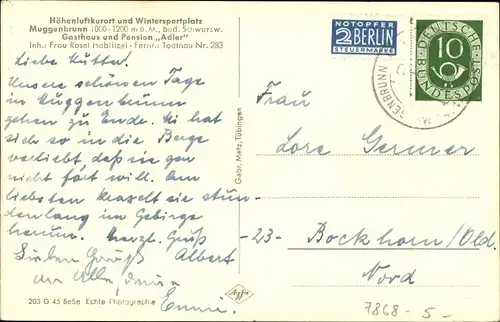 Höhenluftkurort und Wintersportplatz
Muggenbrunn 1000-1200 m ü. M., bad. Schwarzw.
Gasthaus und Pension „Adler"
Inh.: Frau Rosel Hablitzel - Fernr.: Todtnau Nr. 283
Liebe Mutter!
Unsere schönen Tage
in Muggenbrunn
gehen zu Ende. Ki hat
sich so in die Berge
verliebt daß sie gar
nicht fort will. Am
liebsten kraxelt sie stun-
denlang im Gebirge
herum. Herzl. Gruß
Albert
Lieben Gruß
an Alle, deine
Emmi.
203 G 45 BeSe Echte Photographie
Gebr. Metz, Tübingen
Agfa
NOTOPFER
2 BERLIN
STEUERMARKE
DEUTSCHE
BUNDESPOST
10
Frau
Lore Germer
-23- Bockhorn/Old.
Nord
7868-5-